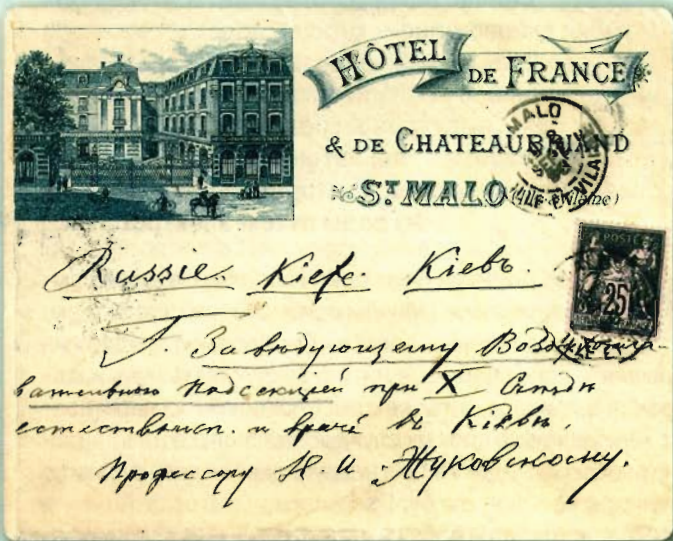 HÔTEL DE FRANCE
& DE CHATEAUBRIAND
ST MALO (Ille & Vilaine)
MALO
ILLE ET VILAINE
POSTE
25
Russie. Kiefe. Кiевъ.
Г. Завѣдующему Воздухопла-
вательною Подсекціей при X Съѣздѣ
естествоисп. и врачей въ Кіевѣ.
Профессору Н. И. Жуковскому.